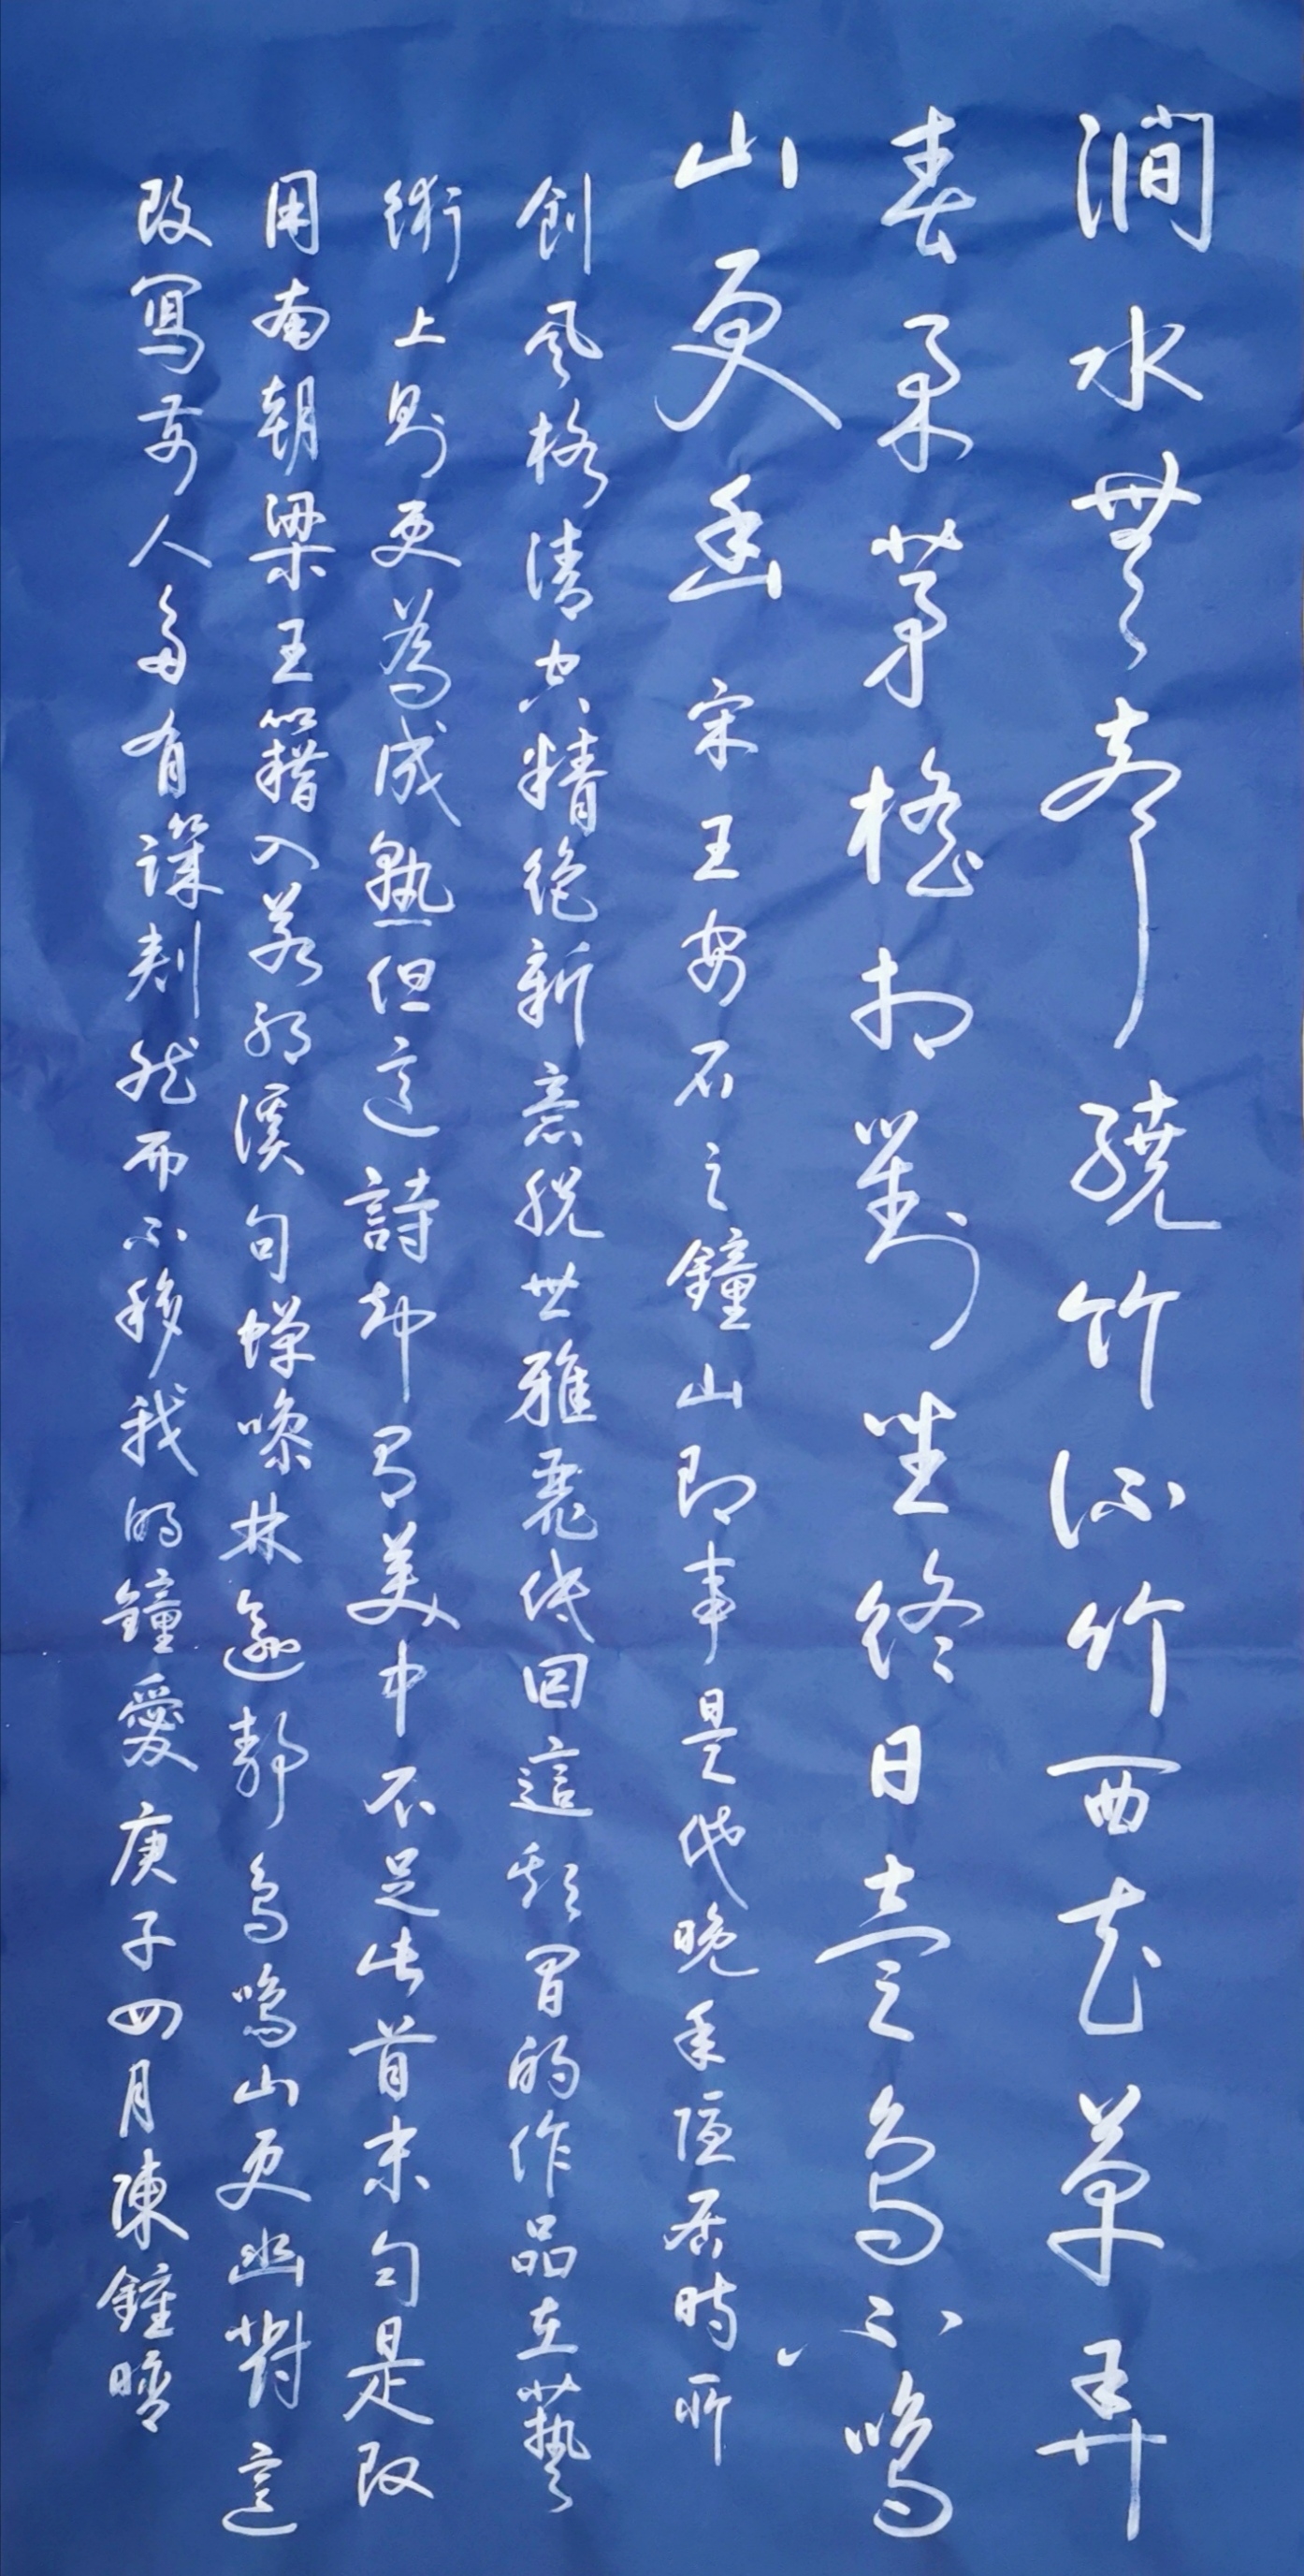 澗水無聲繞竹流竹西花草弄
春柔茅檐相對坐終日壹鳥不鳴
山更幽 宋王安石之鐘山即事是代晚年隱居時所
創風格清空精絕新意脫世雅麗低回這類的作品在藝
術上則更為成熟但這詩却有美中不足此首末句是改
用南朝梁王籍入若耶溪句蟬噪林逾靜鳥鳴山更幽對這
改寫前人多有譏刺然而不移我的鐘愛庚子四月陳鐘